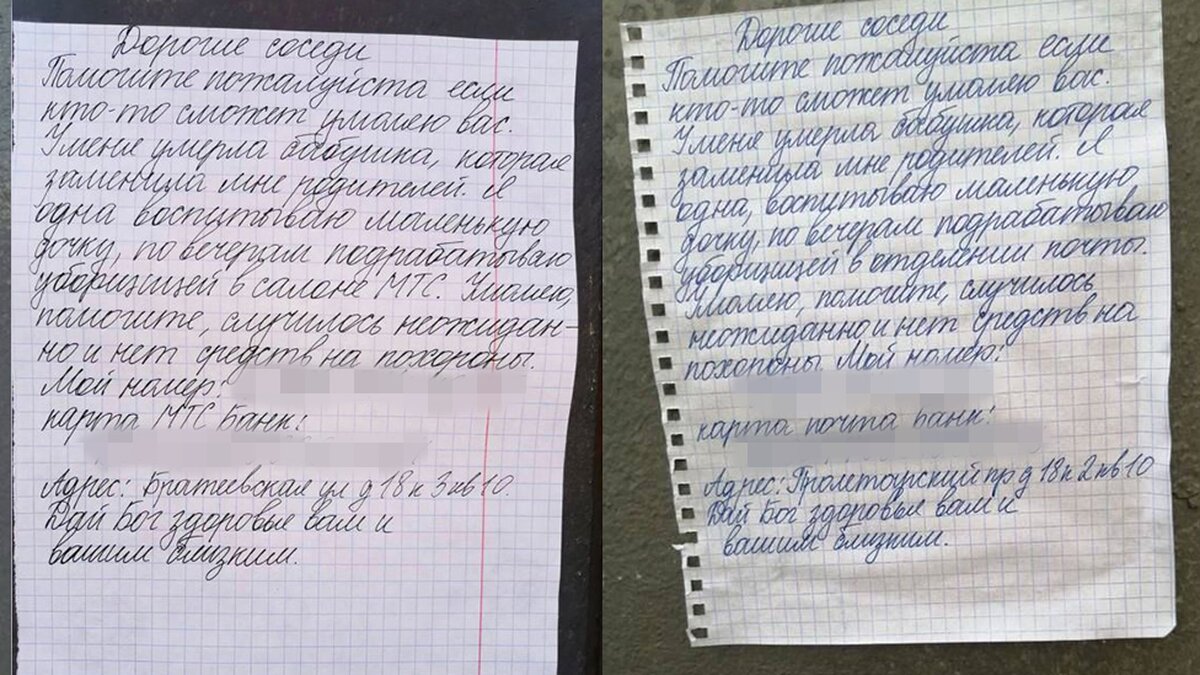 Дорогие соседи
Помогите пожалуйста если
кто-то сможет умоляю вас.
У меня умерла бабушка, которая
заменила мне родителей. Я
одна воспитываю маленькую
дочку, по вечерам подрабатываю
уборщицей в салоне МТС. Умоляю,
помогите, случилось неожидан-
но и нет средств на похороны.
Мой номер:
карта МТС Банк:
Адрес: Братеевская ул д 18 к 3 кв 10.
Дай Бог здоровье вам и
вашим близким.
Дорогие соседи
Помогите пожалуйста если
кто-то сможет умоляю вас.
У меня умерла бабушка, которая
заменила мне родителей. Я
одна, воспитываю маленькую
дочку, по вечерам подрабатываю
уборщицей в отделении почты.
Умоляю, помогите, случилось
неожиданно и нет средств на
похороны. Мой номер:
карта почта банк:
Адрес: Пролетарский пр д 18 к 2 кв 10
Дай Бог здоровье вам и
вашим близким.